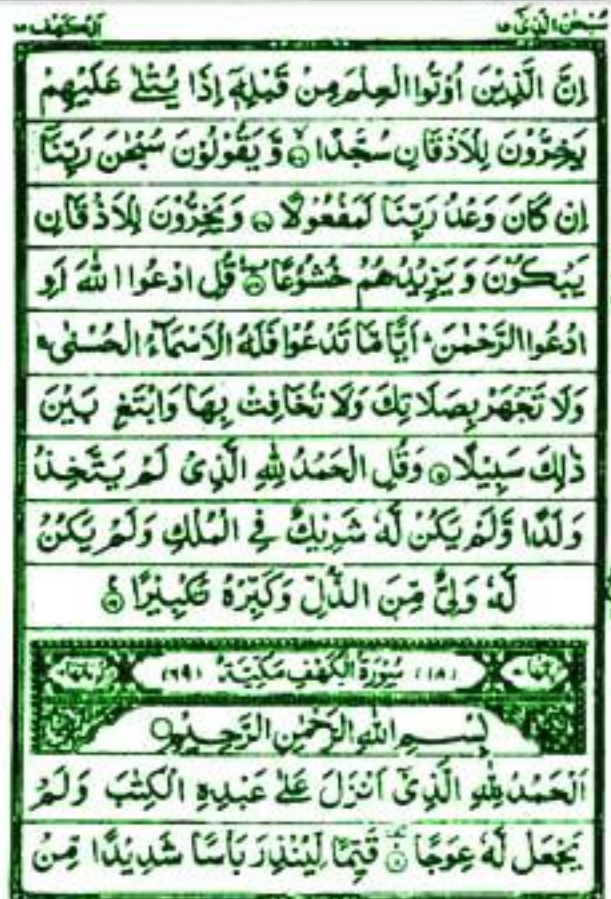 سبحن الذی ۱۵ الکهف ۱۸
اِنَّ الَّذِیْنَ اُوْتُوا الْعِلْمَ مِنْ قَبْلِهٖۤ اِذَا یُتْلٰى عَلَیْهِمْ
یَخِرُّوْنَ لِلْاَذْقَانِ سُجَّدًا ۙ وَّ یَقُوْلُوْنَ سُبْحٰنَ رَبِّنَاۤ
اِنْ كَانَ وَعْدُ رَبِّنَا لَمَفْعُوْلًا وَ یَخِرُّوْنَ لِلْاَذْقَانِ
یَبْكُوْنَ وَ یَزِیْدُهُمْ خُشُوْعًا قُلِ ادْعُوا اللّٰهَ اَوِ
ادْعُوا الرَّحْمٰنَ ؕ اَیًّا مَّا تَدْعُوْا فَلَهُ الْاَسْمَآءُ الْحُسْنٰى ۚ
وَلَا تَجْهَرْ بِصَلَاتِكَ وَلَا تُخَافِتْ بِهَا وَابْتَغِ بَیْنَ
ذٰلِكَ سَبِیْلًا وَقُلِ الْحَمْدُ لِلّٰهِ الَّذِیْ لَمْ یَتَّخِذْ
وَلَدًا وَّلَمْ یَكُنْ لَّهٗ شَرِیْكٌ فِی الْمُلْكِ وَلَمْ یَكُنْ
لَّهٗ وَلِیٌّ مِّنَ الذُّلِّ وَكَبِّرْهُ تَكْبِیْرًا
(۱۸) سُوْرَةُ الْكَهْفِ مَكِّیَّةٌ (۶۹)
بِسْمِ اللّٰهِ الرَّحْمٰنِ الرَّحِیْمِ
اَلْحَمْدُ لِلّٰهِ الَّذِیْۤ اَنْزَلَ عَلٰى عَبْدِهِ الْكِتٰبَ وَلَمْ
یَجْعَلْ لَّهٗ عِوَجًا قَیِّمًا لِّیُنْذِرَ بَاْسًا شَدِیْدًا مِّنْ